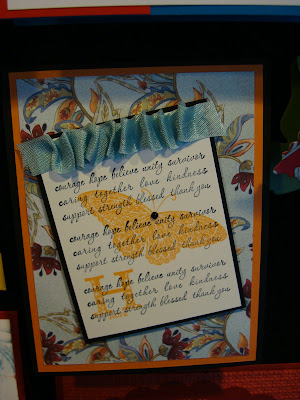 courage hope believe unity survivor
caring together love kindness
support strength blessed thank you
courage hope believe unity survivor
caring together love kindness
support strength blessed thank you
courage hope believe unity survivor
caring together love kindness
support strength blessed thank you
H